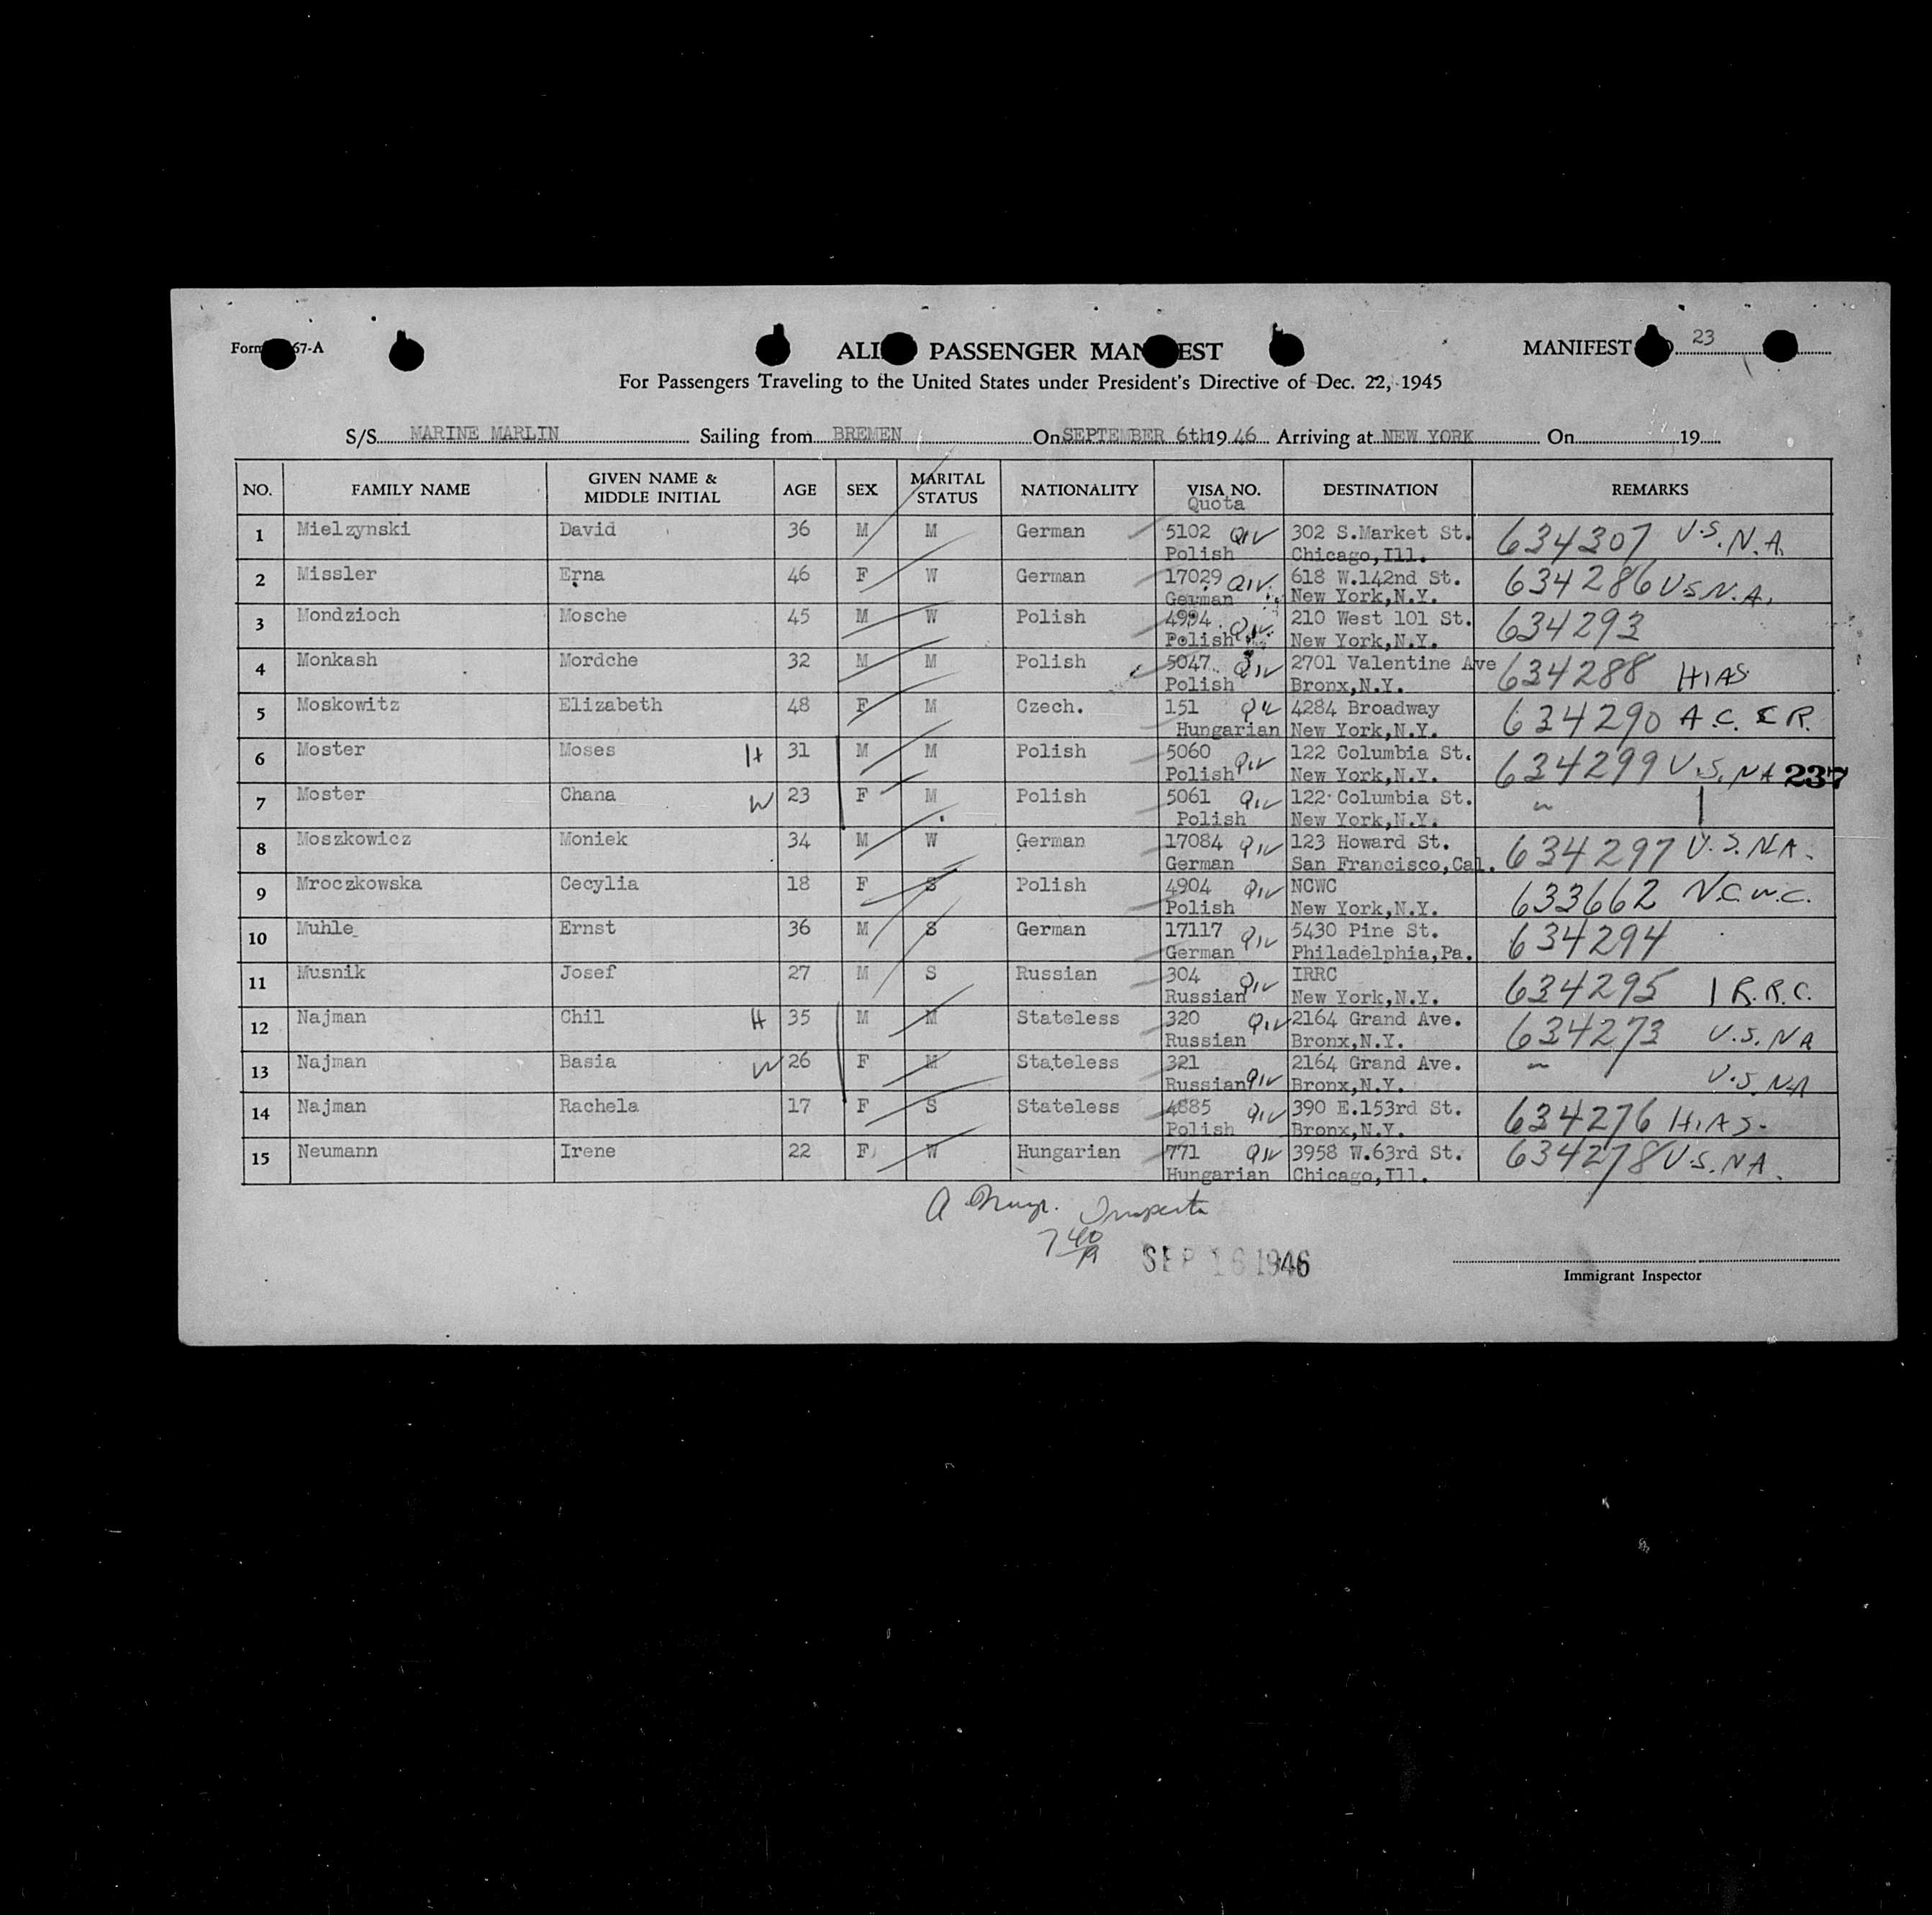 Form 67-A
ALI PASSENGER MAN EST
MANIFEST 23
For Passengers Traveling to the United States under President's Directive of Dec. 22, 1945
S/S MARINE MARLIN Sailing from BREMEN On SEPTEMBER 6th 19 46 Arriving at NEW YORK On 19
NO. FAMILY NAME GIVEN NAME & MIDDLE INITIAL AGE SEX MARITAL STATUS NATIONALITY VISA NO. Quota DESTINATION REMARKS
1 Mielzynski David 36 M M German 5102 QIV 302 S.Market St. 634307 U.S.N.A.
Polish Chicago,Ill.
2 Missler Erna 46 F W German 17029 QIV 618 W.142nd St. 634286 U.S.N.A.
German New York,N.Y.
3 Mondzioch Mosche 45 M W Polish 4994 QIV 210 West 101 St. 634293
Polish New York,N.Y.
4 Monkash Mordche 32 M M Polish 5047 QIV 2701 Valentine Ave 634288 HIAS
Polish Bronx,N.Y.
5 Moskowitz Elizabeth 48 F M Czech. 151 QIV 4284 Broadway 634290 A.C. & R.
Hungarian New York,N.Y.
6 Moster Moses H 31 M M Polish 5060 QIV 122 Columbia St. 634299 U.S.NA 237
Polish New York,N.Y.
7 Moster Chana W 23 F M Polish 5061 QIV 122 Columbia St. "
Polish New York,N.Y.
8 Moszkowicz Moniek 34 M W German 17084 QIV 123 Howard St. 634297 U.S.NA.
German San Francisco,Cal.
9 Mroczkowska Cecylia 18 F S Polish 4904 QIV NCWC 633662 N.C.W.C.
Polish New York,N.Y.
10 Muhle Ernst 36 M S German 17117 QIV 5430 Pine St. 634294
German Philadelphia,Pa.
11 Musnik Josef 27 M S Russian 304 QIV IRRC 634295 I R.R.C.
Russian New York,N.Y.
12 Najman Chil H 35 M M Stateless 320 QIV 2164 Grand Ave. 634273 U.S.NA
Russian Bronx,N.Y.
13 Najman Basia W 26 F M Stateless 321 QIV 2164 Grand Ave. " U.S.NA
Russian Bronx,N.Y.
14 Najman Rachela 17 F S Stateless 4885 QIV 390 E.153rd St. 634276 HIAS.
Polish Bronx,N.Y.
15 Neumann Irene 22 F W Hungarian 771 QIV 3958 W.63rd St. 634278 U.S.NA.
Hungarian Chicago,Ill.
SEP 16 1946
Immigrant Inspector